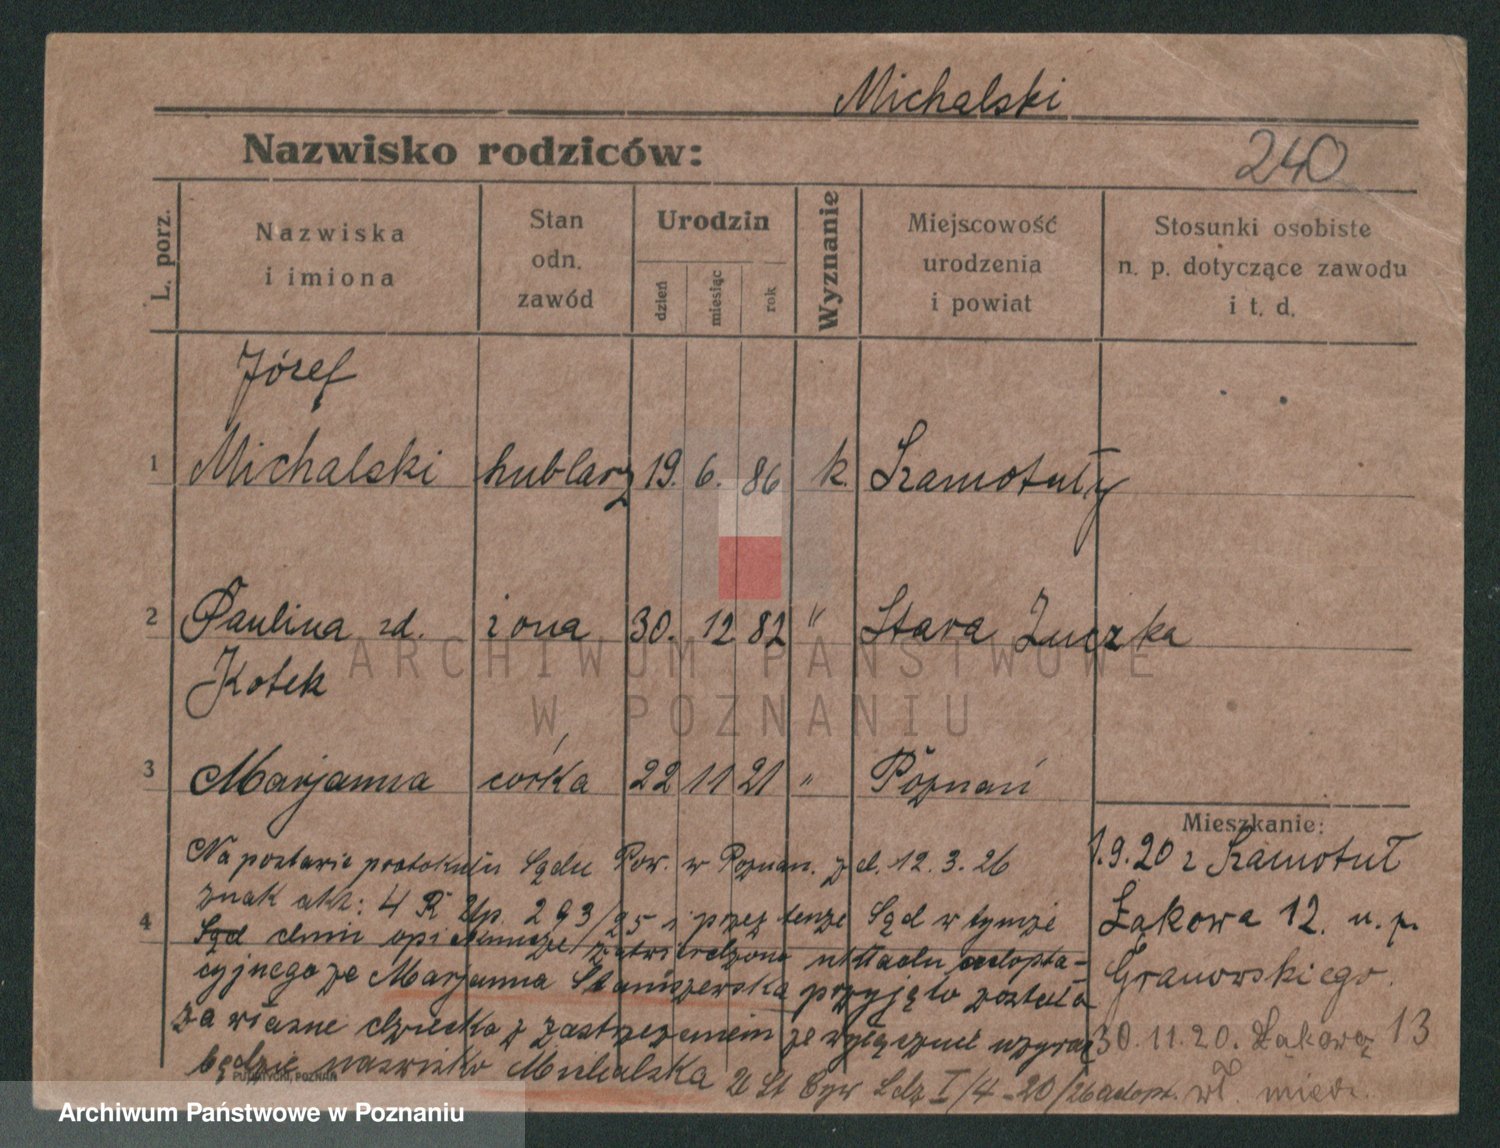 Michalski
Nazwisko rodziców:
240
L. porz.
Nazwiska
i imiona
Stan
odn.
zawód
Urodzin
dzień
miesiąc
rok
Wyznanie
Miejscowość
urodzenia
i powiat
Stosunki osobiste
n. p. dotyczące zawodu
i t. d.
Józef
1 Michalski hublarz 19. 6. 86 k. Szamotuły
2 Paulina zd. żona 30. 12. 82 " Stara
Kotek
3 Marjanna córka 22 11 21 " Poznań
Mieszkanie:
Na postawie protokułu Sądu Pow. w Poznan. z d. 12. 3. 26
znak akt: 4 R 293/25 i przez tenże Sąd w tymże
4 Sąd dniu zatwierdzono układu adopta-
cyjnego ze Marjanna Staniszewska przyjęto została
za własne dziecko z zastrzeżeniem że
będzie nazwisko Michalska
1.9.20 z Szamotuł
Łąkowa 12. u. p.
Granowskiego.
30.11.20. Łąkowa 13
I/4-20/26 adopt.
ARCHIWUM PAŃSTWOWE
W POZNANIU
Archiwum Państwowe w Poznaniu